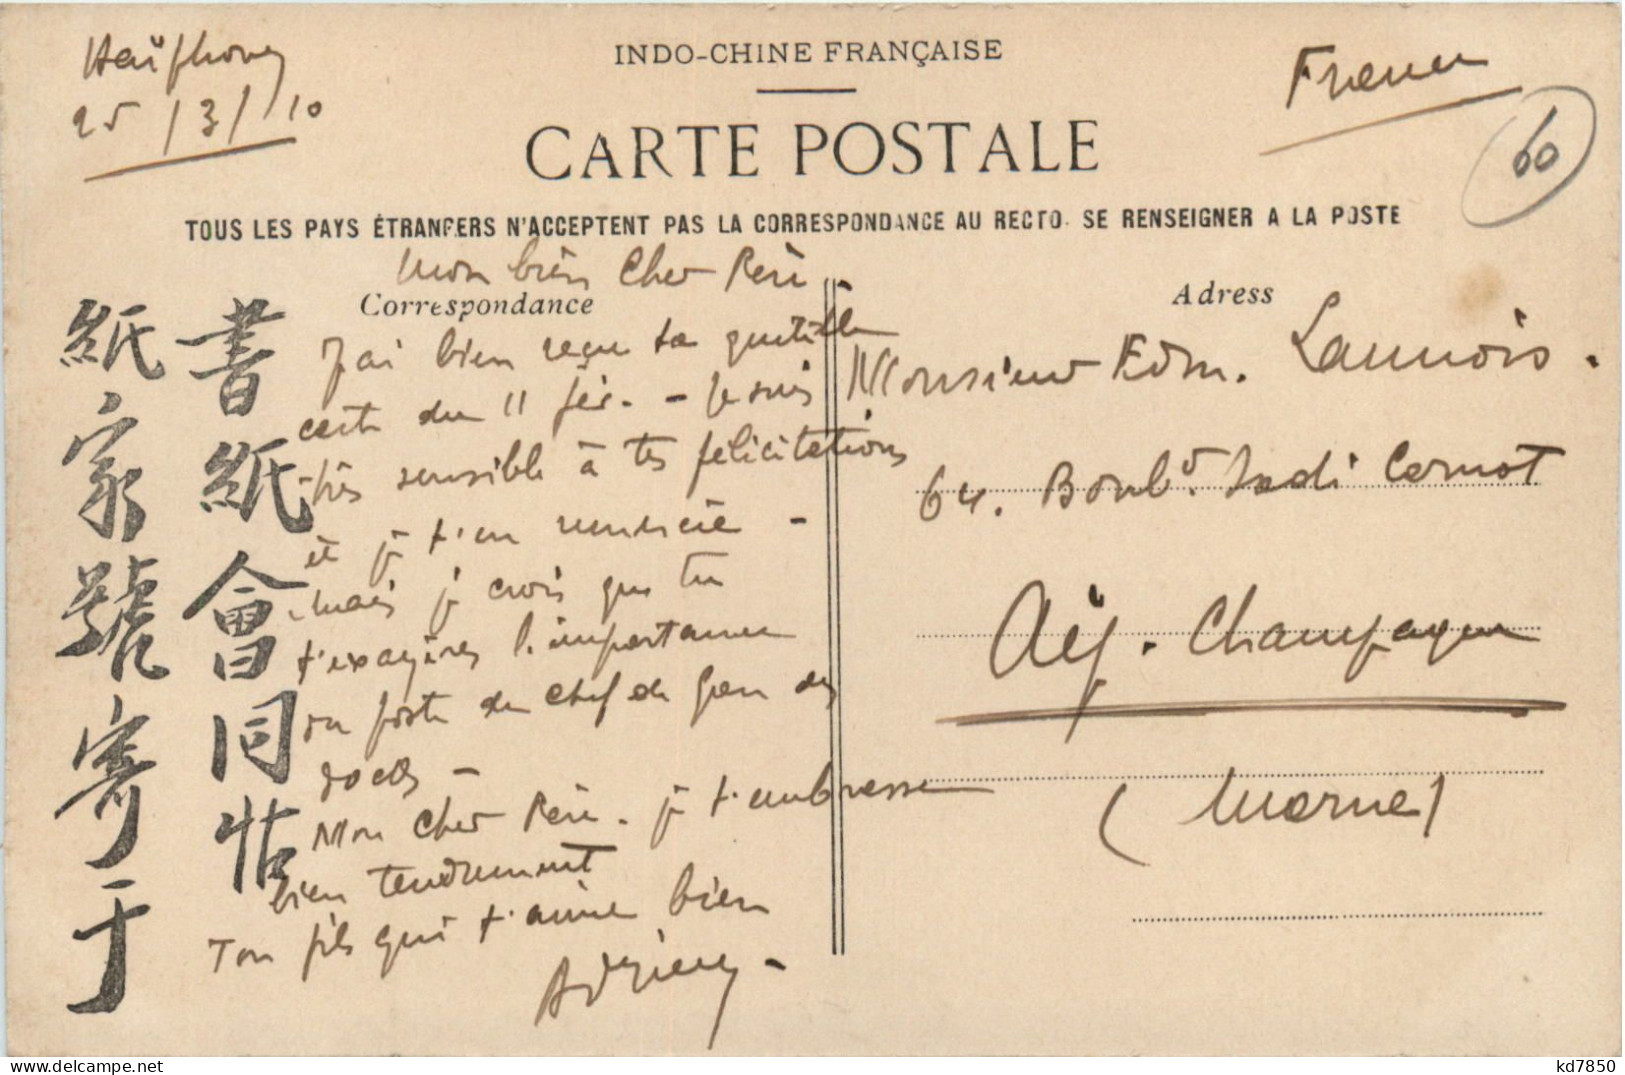 Haïphong
25/3/10
INDO-CHINE FRANÇAISE
France
60
CARTE POSTALE
TOUS LES PAYS ÉTRANGERS N'ACCEPTENT PAS LA CORRESPONDANCE AU RECTO. SE RENSEIGNER A LA POSTE
Mon bien Cher Père
Correspondance
J'ai bien reçu ta gentille
carte du 11 fév. - Je suis
très sensible à tes félicitations
et je t'en remercie -
mais je crois que tu
t'exagères l'importance
du poste de chef de gare des
docks -
Mon Cher Père. je t'embrasse
bien tendrement
Ton fils qui t'aime bien
Adrien -
書紙會同帖
紙家號寄于
Adress
Monsieur Edm. Launois.
64. Boulv. Sadi Carnot
Aÿ. Champagne
(Marne)
kd7850